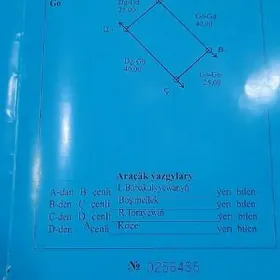 Go
Dg-Gd
25,00
Go-Gd
40,00
B
Dg-Gd
40,00
Go-Go
25,00
Ç
Araçäk ýazgylary
A-dan B çenli I.Barakulyýewanyň ýeri bilen
B-den Ç çenli Boş mellek ýeri bilen
Ç-den D çenli R.Toraýewiň ýeri bilen
D-den A çenli Köçe ýeri bilen
№ 0256435